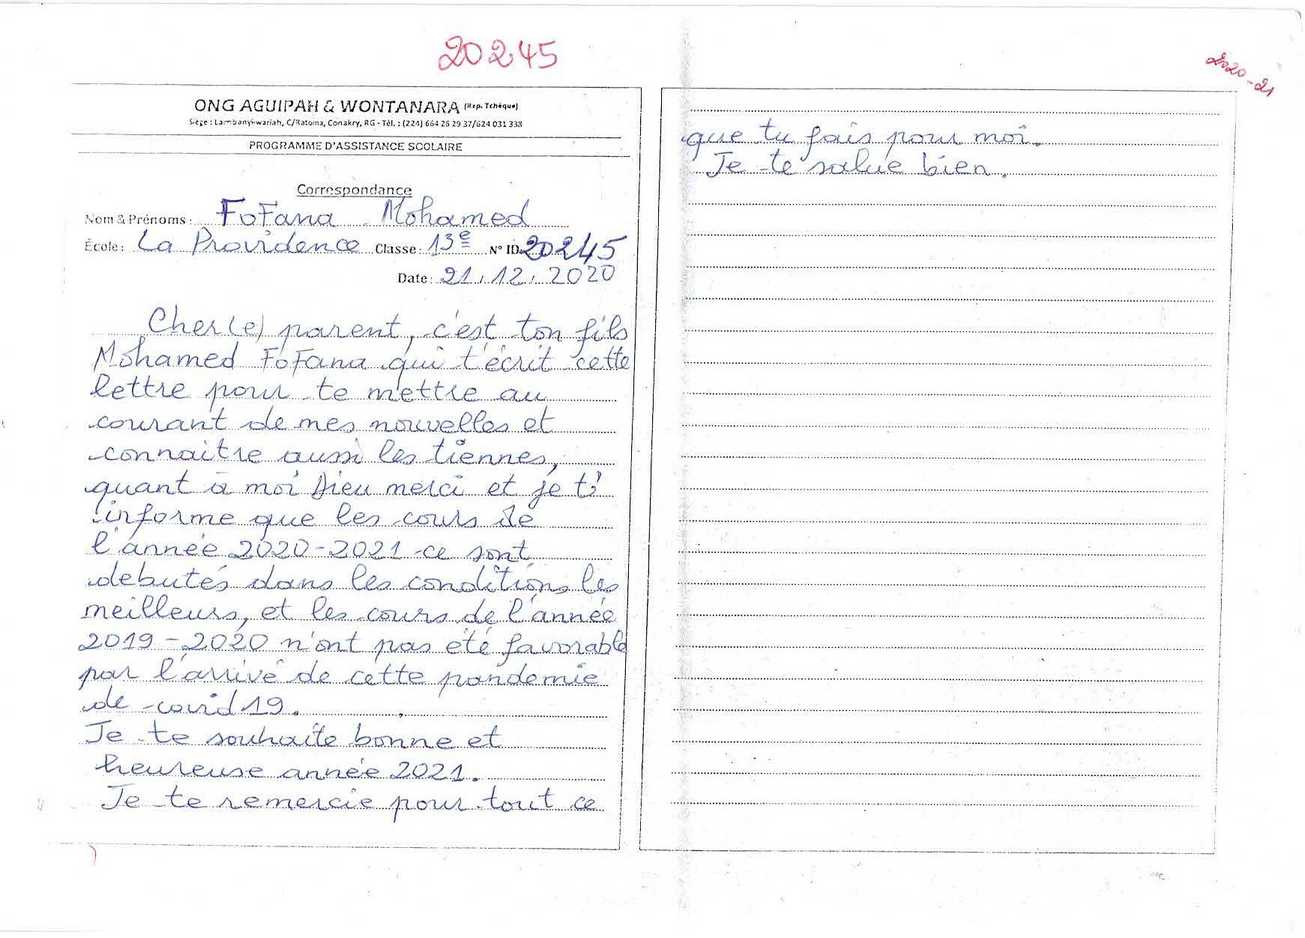 20245
2020-21
ONG AGUIPAH & WONTANARA (Rep. Tchèque)
Siège : Lambanyi-wariah, C/Ratoma, Conakry, RG - Tél. : (224) 664 26 29 37/624 031 338
PROGRAMME D'ASSISTANCE SCOLAIRE
Correspondance
Nom & Prénoms : FoFana Mohamed
École : La Providence Classe : 13e N° ID 20245
Date : 21.12.2020
Cher(e) parent, c'est ton fils
Mohamed FoFana qui t'écrit cette
lettre pour te mettre au
courant de mes nouvelles et
connaitre aussi les tiennes,
quant à moi Dieu merci et je t'
informe que les cours de
l'année 2020-2021 ce sont
debutés dans les conditions les
meilleurs, et les cours de l'année
2019-2020 n'ont pas été favorable
par l'arrivé de cette pandemie
de covid 19.
Je te souhaite bonne et
heureuse année 2021.
Je te remercie pour tout ce
que tu fais pour moi.
Je te salue bien.